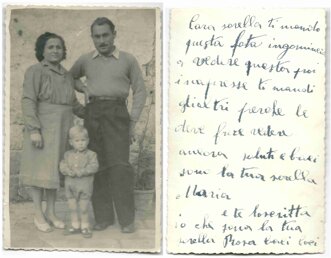 Cara sorella ti mando
questa foto incominci
a vedere questa poi
in apresse ti mandi
gli altri perche le
deve fare vedere
ancora saluti e baci
sono la tua sorella
Maria
e te lo scritto
io che sono la tua
sorella Rosa baci baci